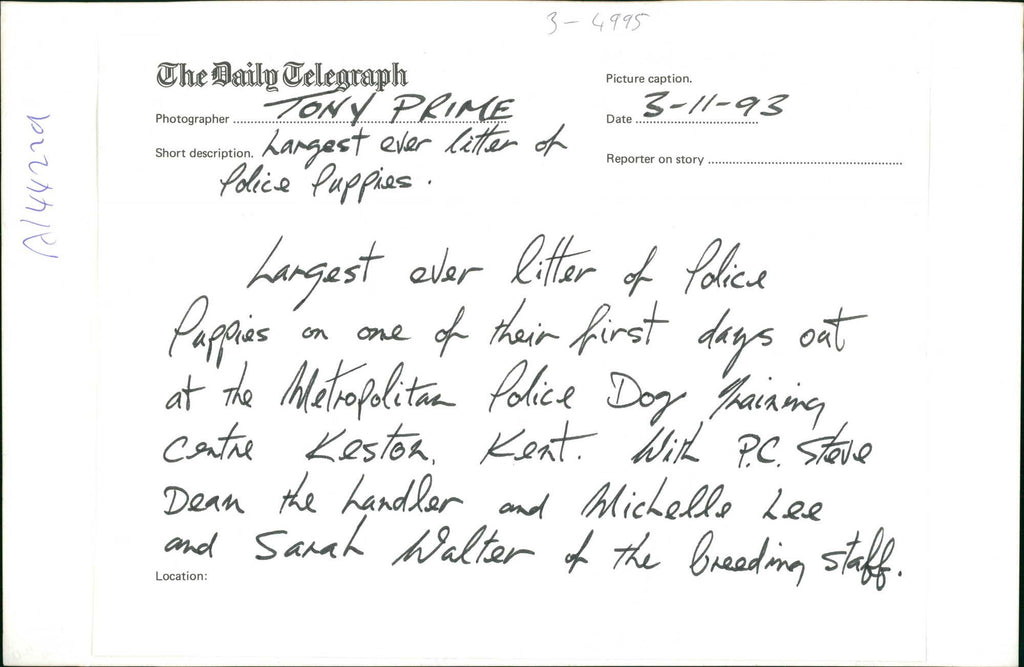 3-4995
The Daily Telegraph
Photographer TONY PRIME
Short description. Largest ever litter of
Police Puppies.
Picture caption.
Date 3-11-93
Reporter on story
A14422a
Largest ever litter of Police
Puppies on one of their first days out
at the Metropolitan Police Dog Training
Centre Keston, Kent. With P.C. Steve
Dean the handler and Michelle Lee
and Sarah Walter of the breeding staff.
Location: